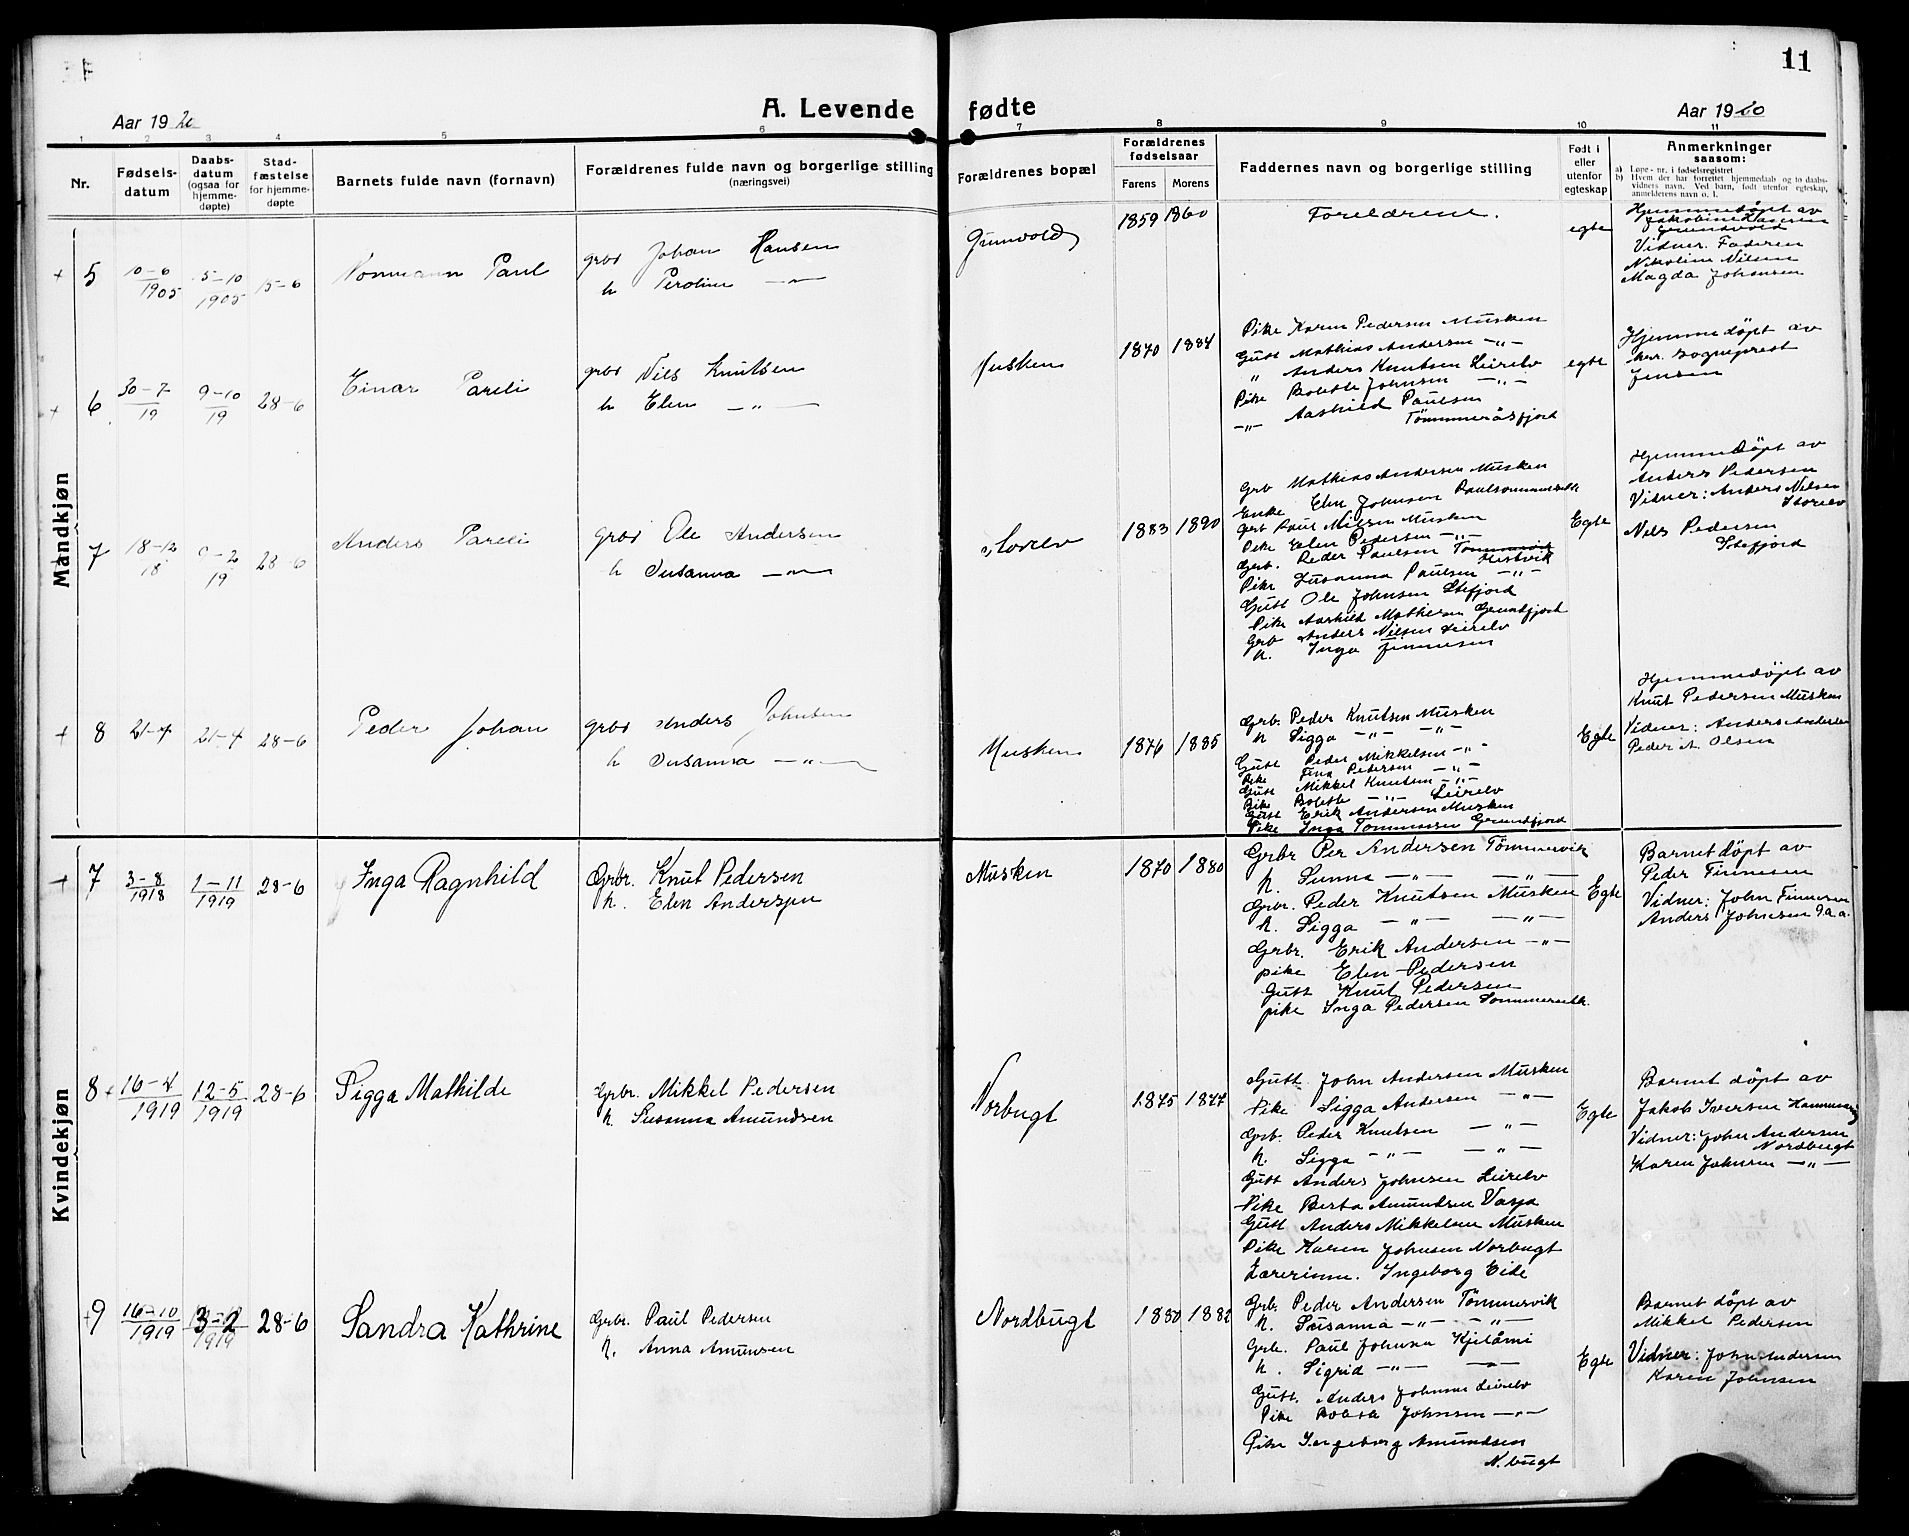 11
A. Levende fødte
Aar 1920
Aar 1920
1 2 3 4 5 6 7 8 9 10 11
Nr.
Fødsels-
datum
Daabs-
datum
(ogsaa for
hjemme-
døpte)
Stad-
fæstelse
for hjemme-
døpte
Barnets fulde navn (fornavn)
Forældrenes fulde navn og borgerlige stilling
(næringsvei)
Forældrenes bopæl
Forældrenes
fødselsaar
Farens
Morens
Faddernes navn og borgerlige stilling
Født i
eller
utenfor
egteskap
Anmerkninger
saasom:
a) Løpe-nr. i fødselsregistret
b) Hvem der har forrettet hjemmedaab og to daabs-
vidners navn. Ved barn, født utenfor egteskap,
anmelderens navn o. l.
Mandkjøn
+ 5
10-6
1905
15-10
1905
15-6
Normann Paul
grbr Johan Hansen
h Peroline —„—
Gunvold
1859 1860
Foreldrene.
egte
Hjemmedöpt av
Jakobine Hansen
Grundvold
Vidner: Faderen
Nikoline Nilsen
Magda Johansen
+ 6
30-7
19
9-10
19
28-6
Einar Pareli
grbr Nils Knutsen
h Elen —„—
Musken
1870 1884
Pike Karen Pedersen Musken
Gutt Mathias Andersen —„—
„ Anders Knutsen Leirelv
Pike Bolette Johnsen —„—
—„— Aashild Paulsen
Tömmeråsfjord
egte
Hjemmedöpt av
hrr. Sogneprest
Jensen
7
18-12
18
9-2
19
28-6
Anders Pareli
grbr Ole Andersen
h Susanna —„—
Storelv
1883 1890
Grb Mathias Andersen Musken
Enke Elen Johnsen
Grb Paul Nilsen Musken
Pike Elen Pedersen —„—
Grb. Peder Paulsen Tömmervik
Hestvik
Pike Susanna Paulsen —„—
Gutt Ole Johnsen Stefjord
Pike Aashild Mathisen Grundfjord
Grb Anders Nilsen Leirelv
h. Inga Finnesen
Egte
Hjemmedöpt av
Anders Pedersen
Vidner: Anders Nilsen
Storelv
Nils Pedersen
Stefjord
+ 8
21-4
21-4
28-6
Peder Johan
grbr Anders Johnsen
h Susanna —„—
Musken
1876 1885
Grb. Peder Knutsen Musken
h Sigga —„— —„—
Gutt Peder Mikkelsen —„—
Pike Fina Pedersen —„—
Gutt Mikkel Knutsen —„—
Pike Bolette —„— Leirelv
Gutt Erik Andersen Musken
Pike Inga Tommassen Grundfjord
Egte
Hjemmedöpt av
Knut Pedersen Musken
Vidner: Anders Andersen
Peder A. Olsen
Kvindekjøn
+ 7
3-8
1918
1-11
1919
28-6
Inga Ragnhild
Grbr. Knut Pedersen
h. Elen Anderssen
Musken
1870 1880
Grbr Per Andersen Tömmervik
h. Sunna —„— —„—
Grbr. Peder Knutsen Musken
h. Sigga —„— —„—
Grbr. Erik Andersen —„—
pike Elen Pedersen
Gutt Knut Pedersen
pike Inga Pedersen
Egte
Barnet döpt av
Peder Finnesen
Vidner: John Finnesen
Anders Johnsen g.a.a.
8 +
16-4
1919
12-5
1919
28-6
Sigga Mathilde
Grbr. Mikkel Pedersen
h. Susanna Amundsen
Norbugt
1875 1877
Gutt John Andersen Musken
Pike Sigga Andersen —„—
Grb. Peder Knutsen —„—
h. Sigga —„— —„—
Gutt Anders Johnsen Leirelv
Pike Berta Amundsen Vasja
Gutt Anders Mikkelsen Musken
Pike Karen Johnsen Norbugt
Lærerinne. Ingeborg Eide
Egte
Barnet döpt av
Jakob Iversen
Vidner: John Andersen
Nordbugt
Karen Johnsen —„—
+ 9
16-10
1919
3-2
1919
28-6
Sandra Kathrine
Grbr. Paul Pedersen
h. Anna Amunsen
Nordbugt
1880 1882
Grb. Peder Andersen Tömmervik
h. Susanna —„— —„—
Grb. Paul Johnsa Kjelåmi
h. Sigrid —„— —„—
Gutt. Anders Johnsen Leirelv
Pike Bolette Johnsen —„—
Pike Ingeborg Amundsen
N.bugt
Egte
Barnet döpt av
Mikkel Pedersen
Vidner: John Andersen
Karen Johnsen